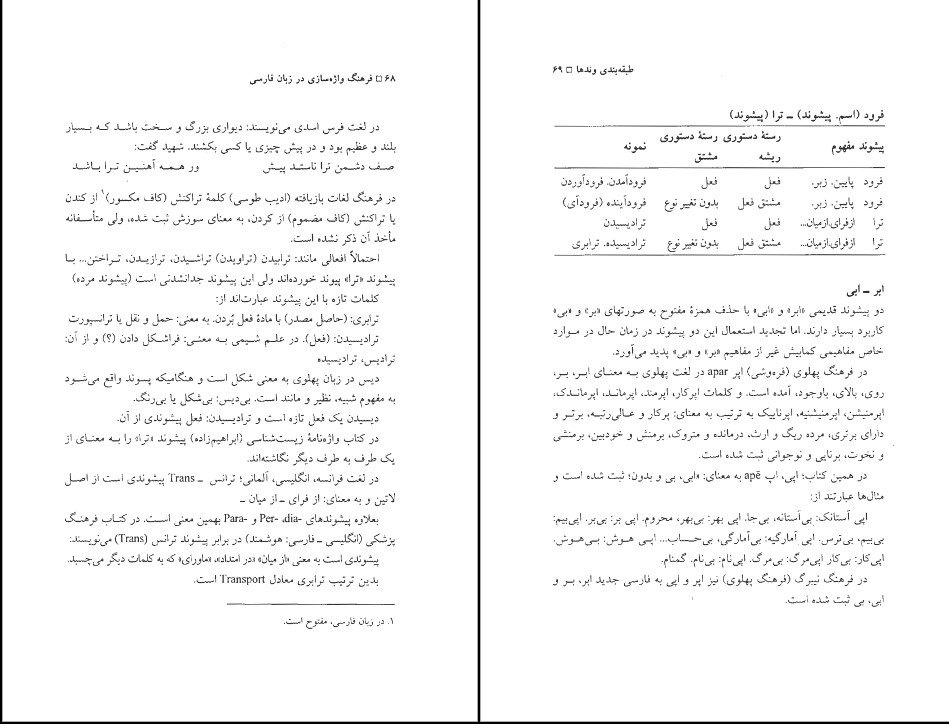 ۶۸ □ فرهنگ واژه‌سازی در زبان فارسی
در لغت فرس اسدی می‌نویسند: دیواری بزرگ و سخت باشد که بسیار
بلند و عظیم بود و در پیش چیزی یا کسی بکشند. شهید گفت:
صف دشمن ترا ناستد پیش ور همه آهنین ترا باشد
در فرهنگ لغات بازیافته (ادیب طوسی) کلمهٔ تراکنش (کاف مکسور)۱ از کندن
یا تراکنش (کاف مضموم) از کردن، به معنای سوزش ثبت شده، ولی متأسفانه
مأخذ آن ذکر نشده است.
احتمالاً افعالی مانند: ترابیدن (تراویدن) تراشیدن، ترازیدن، تراختن... با
پیشوند «ترا» پیوند خورده‌اند ولی این پیشوند جدانشدنی است (پیشوند مرده)
کلمات تازه با این پیشوند عبارت‌اند از:
ترابری: (حاصل مصدر) با مادهٔ فعل بُردن. به معنی: حمل و نقل یا ترانسپورت
ترادیسیدن: (فعل). در علم شیمی به معنی: فراشکل دادن (؟) و از آن:
ترادیس، ترادیسیده
دیس در زبان پهلوی به معنی شکل است و هنگامیکه پسوند واقع می‌شود
به مفهوم شبیه، نظیر و مانند است. بی‌دیس: بی‌شکل یا بی‌رنگ.
دیسیدن یک فعل تازه است و ترادیسیدن: فعل پیشوندی از آن.
در کتاب واژه‌نامهٔ زیست‌شناسی (ابراهیم‌زاده) پیشوند «ترا» را به معنای از
یک طرف به طرف دیگر نگاشته‌اند.
در لغت فرانسه، انگلیسی، آلمانی؛ ترانس ـ Trans پیشوندی است از اصل
لاتین و به معنای: از فرای ـ از میان ـ
بعلاوه پیشوندهای dia- ،Per- و Para- بهمین معنی است. در کتاب فرهنگ
پزشکی (انگلیسی ـ فارسی: هوشمند) در برابر پیشوند ترانس (Trans) می‌نویسند:
پیشوندی است به معنی «از میان» «در امتداد»، «ماورای» که به کلمات دیگر می‌چسبد.
بدین ترتیب ترابری معادل Transport است.
۱. در زبان فارسی، مفتوح است.
طبقه‌بندی وندها □ ۶۹
فرود (اسم. پیشوند) ـ ترا (پیشوند)
پیشوند مفهوم رستهٔ دستوری ریشه رستهٔ دستوری مشتق نمونه
فرود پایین. زبر. فعل فعل فرودآمدن. فرودآوردن
فرود پایین. زبر. مشتق فعل بدون تغییر نوع فرودآینده (فرودآی)
ترا ازفرای.ازمیان... فعل فعل ترادیسیدن
ترا ازفرای.ازمیان... مشتق فعل بدون تغییر نوع ترادیسیده. ترابری
ابر ـ ابی
دو پیشوند قدیمی «ابر» و «ابی» با حذف همزهٔ مفتوح به صورتهای «بر» و «بی»
کاربرد بسیار دارند. اما تجدید استعمال این دو پیشوند در زمان حال در موارد
خاص مفاهیمی کمابیش غیر از مفاهیم «بر» و «بی» پدید می‌آورد.
در فرهنگ پهلوی (فره‌وشی) اپر apar در لغت پهلوی به معنای ابر، بر،
روی، بالای، باوجود، آمده است. و کلمات اپرکار، اپرمند، اپرماند، اپرماندک،
اپرمنیشن، اپرمنیشنیه، اپرناییک به ترتیب به معنای: پرکار و عالی‌رتبه، برتر و
دارای برتری، مرده ریگ و ارث، درمانده و متروک، برمنش و خودبین، برمنشی
و نخوت، برنایی و نوجوانی ثبت شده است.
در همین کتاب؛ اپی، اپ apē به معنای: «ابی، بی و بدون؛ ثبت شده است و
مثال‌ها عبارتند از:
اپی آستانک: بی‌آستانه، بی‌جا. اپی بهر: بی‌بهر، محروم. اپی بر: بی‌بر. اپی‌بیم:
بی‌بیم، بی‌ترس. اپی آمارگیه: بی‌آمارگی، بی‌حساب... اپی هوش: بی‌هوش.
اپی‌کار: بی‌کار اپی‌مرگ: بی‌مرگ. اپی‌نام: بی‌نام. گمنام.
در فرهنگ نیبرگ (فرهنگ پهلوی) نیز اپر و اپی به فارسی جدید ابر، بر و
ابی، بی ثبت شده است.